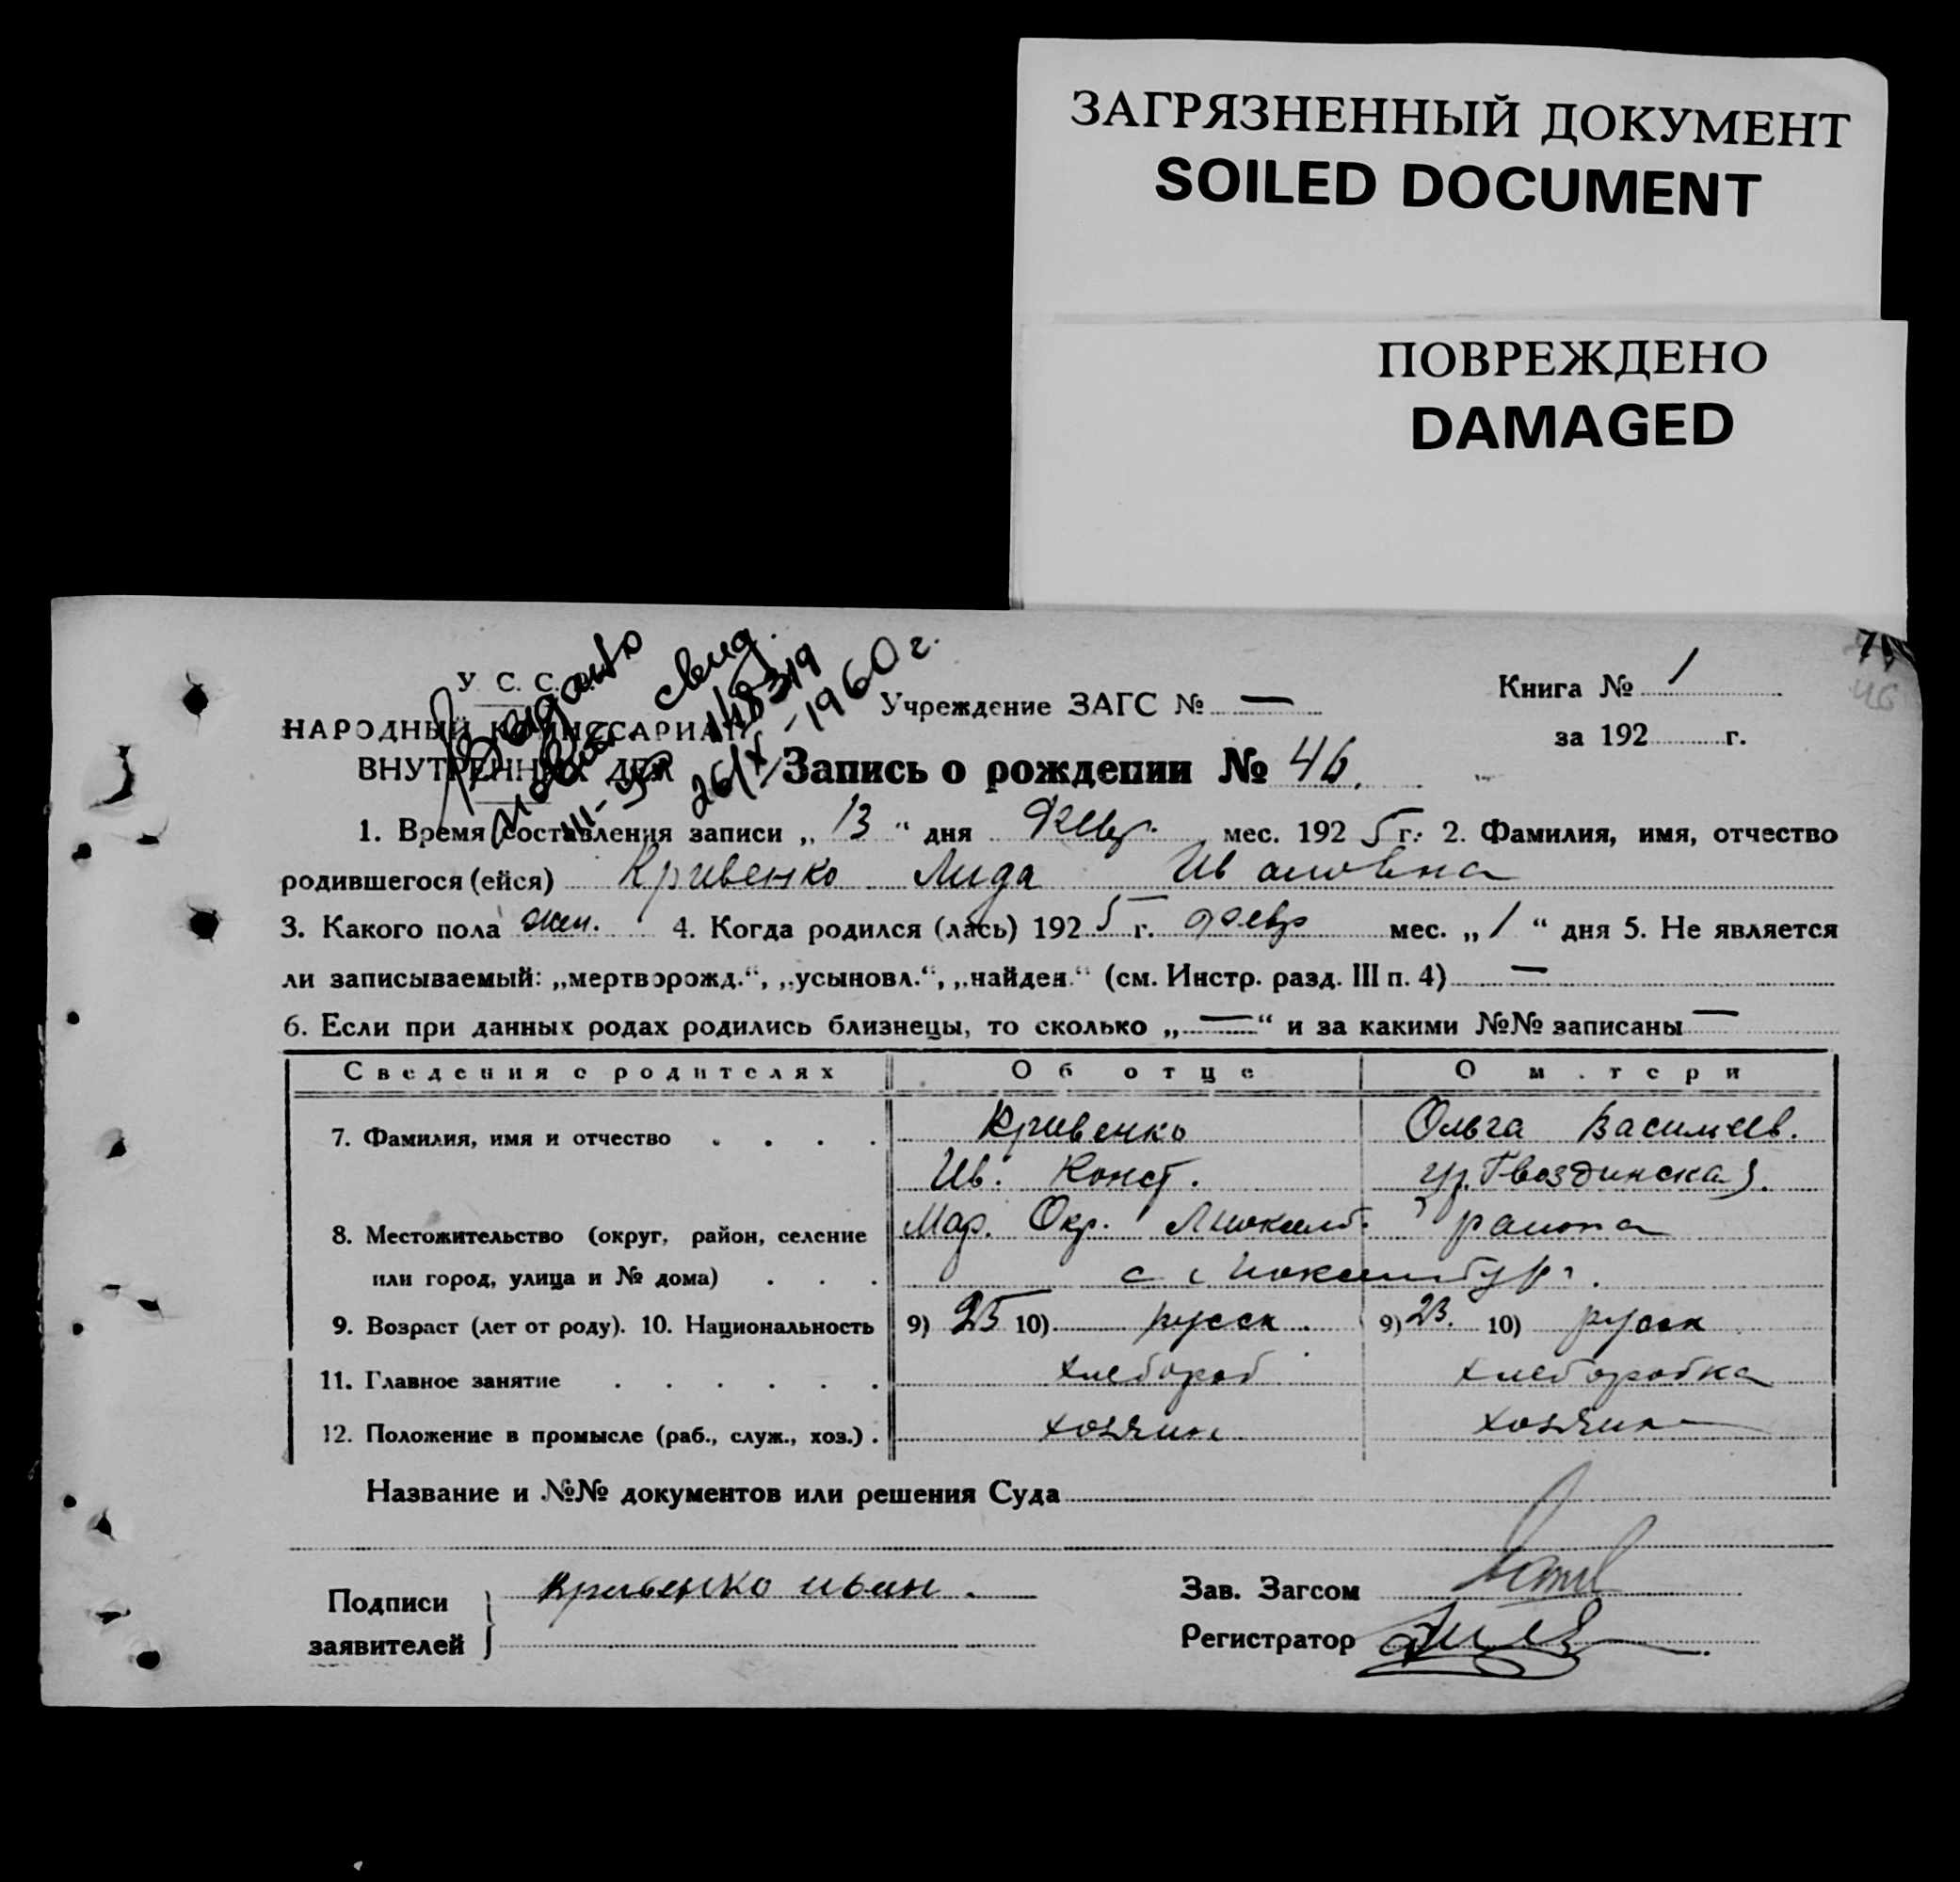 ЗАГРЯЗНЕННЫЙ ДОКУМЕНТ
SOILED DOCUMENT
ПОВРЕЖДЕНО
DAMAGED
У. С. С.
НАРОДНЫЙ КОМИССАРИАТ
ВНУТРЕННИХ ДЕЛ
Выдано
свид.
26/X-1960 г.
Учреждение ЗАГС № —
Книга № 1
за 192 г.
Запись о рождении № 46.
1. Время составления записи „ 13 “ дня февр. мес. 192 5 г. 2. Фамилия, имя, отчество
родившегося (ейся) Кривенко Лида Ивановна
3. Какого пола жен. 4. Когда родился (лась) 192 5 г. февр мес. „ 1 “ дня 5. Не является
ли записываемый: „мертворожд.“, „усыновл.“, „найден.“ (см. Инстр. разд. III п. 4) —
6. Если при данных родах родились близнецы, то сколько „ — “ и за какими №№ записаны —
Сведения о родителях Об отце О м.тери
7. Фамилия, имя и отчество . . . . Кривенко Ольга Васильев.
Ив. Конст. Гвоздинска
8. Местожительство (округ, район, селение Мар. Окр. района
или город, улица и № дома) . . . с
9. Возраст (лет от роду). 10. Национальность 9) 25 10) русск. 9) 23. 10) русск
11. Главное занятие . . . . . . хлебороб хлеборобка
12. Положение в промысле (раб., служ., хоз.) . хозяин хозяика
Название и №№ документов или решения Суда
Подписи Кривенко иван.
заявителей
Зав. Загсом
Регистратор